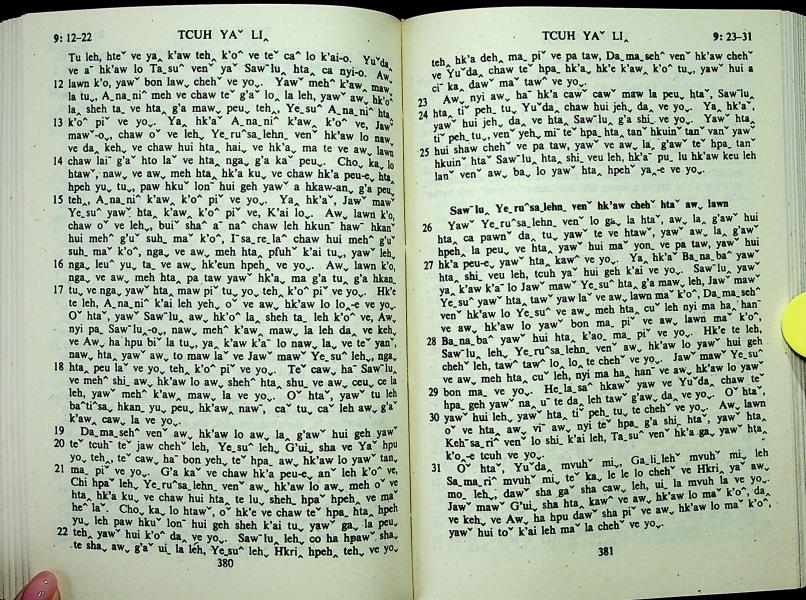 9: 12-22 TCUH YAˇ LI‸
Tu leh, hteˇ ve ya‸ k'aw teh‸ k'oˆ ve teˇ caˆ lo k'ai-o. Yuˇda‸
ve aˉ hk'aw lo Ta‸suˆ venˇ yaˇ Sawˉlu‸ hta‸ ca nyi-o. Aw‸
12 lawn k'o, yawˇ bon law‸ chehˇ ve yo‸. Yawˇ mehˆ k'aw‸ maw‸
la tu‸, A‸naˍniˆ meh ve chaw teˇ g'aˇ lo‸ la leh, yawˇ aw‸ hk'oˇ
la‸ sheh ta‸ ve hta‸ g'a maw‸ peu‸ teh‸, Ye‸suˆ A‸na‸niˆ hta‸
13 k'oˆ piˇ ve yo‸. Ya‸ hk'aˇ A‸na‸niˆ k'aw‸ k'oˆ ve, Jawˇ
mawˇ-o‸, chaw oˇ ve leh‸ Ye‸ruˆsa‸lehn‸ venˇ hk'aw lo naw‸
ve da‸ keh‸ ve chaw hui hta‸ hai‸ ve hk'a‸ ma te ve aw‸ lawn
14 chaw laiˉ g'aˇ hto laˇ ve hta‸ nga‸ g'a kaˇ peu‸. Cho‸ ka‸ lo
htawˇ, nawˇ ve aw‸ meh hta‸ hk'a ku‸ ve chaw hk'a peu-e‸ hta‸
hpeh yu‸ tu‸, paw hkuˇ lonˉ hui geh yawˇ a hkaw-an‸ g'a peu‸
15 teh‸, A‸na‸niˆ k'aw‸ k'oˆ piˇ ve yo‸. Ya‸ hk'aˇ, Jawˇ maw
Ye‸suˇ yawˇ hta‸ k'aw‸ k'oˆ piˇ ve, K'ai lo‸. Aw‸ lawn k'o,
chaw oˇ ve leh‸, buiˇ shaˆ aˉ naˆ chaw leh hkunˉ hawˉ hkanˇ
hui mehˆ g'uˇ suh‸ maˇ k'oˆ, Iˉsa‸re‸laˆ chaw hui mehˆ g'uˇ
suh‸ maˇ k'oˆ, nga‸ ve aw‸ meh hta‸ pfuhˇ k'ai tu‸, yawˇ leh‸
16 nga‸ leuˆ yu‸ ta‸ ve aw‸ hk'eun hpeh‸ ve yo‸. Aw‸ lawn k'o,
nga‸ ve aw‸ meh hta‸ pa taw yawˇ hk'a‸ ma g'a tu‸ g'a hkan‸
17 tu‸ ve nga‸ yawˇ hta‸ maw piˇ tu‸ yo‸ teh‸ k'oˆ piˇ ve yo‸. Hk'e
te leh, A‸na‸niˆ k'ai leh yeh‸ oˇ ve aw‸ hk'aw lo lo‸-e ve yo‸.
Oˇ htaˇ, yawˇ Sawˉlu‸ aw‸ hk'oˆ la‸ sheh ta‸ leh k'oˆ ve, Aw‸
nyi pa‸ Sawˉlu‸-o‸, naw‸ mehˆ k'aw‸ maw‸ la leh da‸ ve keh‸
ve Aw‸ ha hpu biˇ la tu‸, ya‸ k'aw k'aˉ lo naw‸ la‸ ve teˇ yanˇ,
naw‸ hta‸ yawˇ aw‸ to maw laˇ ve Jawˇ maw Ye‸suˆ leh‸, nga‸
18 hta‸ peu laˇ ve yo‸ teh‸ k'oˆ piˇ ve yo‸. Teˇ caw‸ haˉ Sawˉlu‸
ve mehˆ shi‸ aw‸ hk'aw lo aw‸ shehˆ hta‸ shu‸ ve aw‸ ceu‸ ce la
leh, yawˇ mehˆ k'aw‸ maw‸ la ve yo‸. Oˇ htaˇ, yawˇ tu leh
baˆtiˆsa‸ hkan‸ yu‸ peu‸ hk'aw nawˉ, caˇ tu‸ caˇ leh aw‸ g'aˇ
k'aw‸ caw‸ la ve yo‸.
19 Da‸ma‸sehˆ venˇ aw‸ hk'aw lo aw‸ la‸ g'awˇ hui geh yawˇ
20 teˇ tcuhˉ teˇ jaw chehˇ leh, Ye‸suˆ leh‸ G'ui‸ sha ve Yaˇ hpu
yo‸ teh‸, teˇ caw‸ haˉ bon yeh‸ teˇ hpa‸ aw‸ hk'aw lo yawˇ tan‸
21 ma‸ piˇ ve yo‸. G'a kaˇ ve chaw hk'a peu-e‸ anˇ leh k'oˆ ve,
Chi hpaˇ leh‸ Ye‸ruˆsa‸lehn‸ venˇ aw‸ hk'aw lo aw‸ meh oˇ ve
hta‸ hk'a ku‸ ve chaw hui hta‸ te lu‸ sheh‸ hpaˇ hpeh‸ ve maˇ
heˆ laˇ. Cho‸ ka‸ lo htawˇ, oˇ hk'e ve chaw teˇ hpa‸ hta‸ hpeh
yu‸ leh paw hkuˇ lonˉ hui geh sheh k'ai tu‸ yawˇ ga‸ la peu‸
22 teh‸ yawˇ hui k'oˇ da‸ ve yo‸. Sawˉlu‸ leh‸ co ha hpawˇ sha‸
te sha‸ aw‸ g'aˇ ui‸ la leh, Ye‸suˆ leh‸ Hkri‸ hpeh‸ teh‸ ve yo‸
380
TCUH YAˇ LI‸ 9: 23-31
teh‸ hk'a deh‸ ma‸ piˇ ve pa taw, Da‸ma‸sehˆ venˇ hk'aw chehˇ
ve Yuˇda‸ chaw teˇ hpa‸ hk'a‸ hk'e k'aw‸ k'oˆ tu‸, yawˇ hui a
ciˇ ka‸ dawˇ maˇ tawˆ ve yo‸.
23 Aw‸ nyi aw‸ haˉ hk'a cawˇ cawˇ maw la peu‸ htaˇ, Sawˉlu‸
24 hta‸ tiˇ peh‸ tu‸ Yuˇda‸ chaw hui jeh‸ da‸ ve yo‸. Ya‸ hk'aˇ,
yawˇ hui jeh‸ da‸ ve hta‸ Sawˉlu‸ g'a shi‸ ve yo‸. Yawˇ hta‸
tiˇ peh‸tu‸, venˇ yeh‸ miˉ teˇ hpa‸ hta‸ tanˇ hkuinˇ tanˇ vanˇ yawˇ
hui shaw chehˇ ve pa taw, yawˇ ve aw‸ la‸ g'awˇ teˇ hpa‸ tanˇ
25 hkuinˇ htaˇ Sawˉlu‸ hta‸ shi‸ veu leh‸ hk'aˇ pu‸ lu hk'aw keu leh
lanˇ venˇ aw‸ ba‸ lo yawˇ hta‸ hpehˇ ya‸-e ve yo‸.
Sawˉlu‸ Ye‸ruˆsa‸lehn‸ venˇ hk'aw chehˇ htaˇ aw‸ lawn
26 Yawˇ Ye‸ruˆsa‸lehn‸ venˇ lo ga‸ la htaˇ, aw‸ la‸ g'awˇ hui
hta‸ ca pawnˇ da‸ tu‸ yawˇ te ve htawˇ, yawˇ aw‸ la‸ g'awˇ
hpeh‸ la peu‸ ve hta‸ yawˇ hui maˇ yon‸ ve pa taw, yawˇ hui
27 hk'a peu-e‸ yawˇ hta‸ kawˆ ve yo‸. Ya‸ hk'aˇ Ba‸na‸baˆ yawˇ
hta‸ shi‸ veu leh, tcuh yaˇ hui geh k'ai ve yo‸. Sawˉlu‸ yawˇ
ya‸ k'aw k'aˉ lo Jawˇ mawˇ Ye‸suˆ hta‸ g'a maw‸ leh, Jawˇ mawˇ
Ye‸suˆ yawˇ hta‸ tawˇ yaw laˇ ve aw‸ lawn maˇ k'oˆ, Da‸ma‸sehˆ
venˇ hk'aw lo Yeˇsuˆ ve aw‸ meh hta‸ cuˇ leh nyi ma ha‸ hanˉ
ve aw‸ hk'aw lo yawˇ bon ma‸ piˇ ve aw‸ lawn maˇ k'oˆ,
28 Ba‸na‸baˆ yawˇ hui hta‸ k'ao‸ ma‸ piˇ ve yo‸. Hk'e te leh,
Sawˉlu‸ leh‸ Ye‸ruˆsa‸lehn‸ venˇ aw‸ hk'aw lo yawˇ hui geh
chehˇ leh‸ tawˆ tawˆ lo‸ lo‸ te chehˇ ve yo‸. Jawˇ maw Ye‸suˆ
ve aw‸ meh hta‸ cuˇ leh‸ nyi ma ha‸ hanˉ ve aw‸ hk'aw lo yawˇ
29 bon ma‸ ve yo‸. He‸la‸saˆ hkawˇ yaw ve Yuˇda‸ chaw teˇ
hpa‸ geh yawˇ na‸ uˉ te da‸ leh tawˇ g'aw‸ da‸ ve yo‸. Oˇ htaˇ,
30 yawˇ hui leh‸ yawˇ hta‸ tiˇ peh‸ tu‸ te chehˇ ve yo‸. Aw‸ lawn
oˇ ve hta‸ aw‸ viˇ aw‸ nyi teˇ hpa‸ g'a shi‸ htaˇ, yawˇ hta‸
Kehˉsa‸riˆ venˇ lo shi‸ k'ai leh, Ta‸suˆ venˇ hk'a ga‸ yawˇ hta‸
k'o‸-e tcuh ve yo‸.
31 Oˇ htaˇ, Yuˇda‸ mvuhˇ mi‸, Ga‸li‸leh mvuhˇ mi‸ leh
Sa‸ma‸riˆ mvuhˇ mi‸ teˇ ka‸ le le lo chehˇ ve Hkri‸ yaˇ aw‸
mo‸ leh‸, dawˇ sha gaˇ sha caw leh, ui‸ la mvuh la ve yo‸.
Jawˇ mawˇ G'ui‸ sha hta‸ kawˆ ve aw‸ hk'aw lo maˇ k'oˆ, da‸
ve keh‸ ve Aw‸ ha hpu dawˇ sha piˇ ve aw‸ hk'aw lo maˇ k'oˆ,
yawˇ hui toˇ k'ai leh maˇ la chehˇ ve yo‸.
381